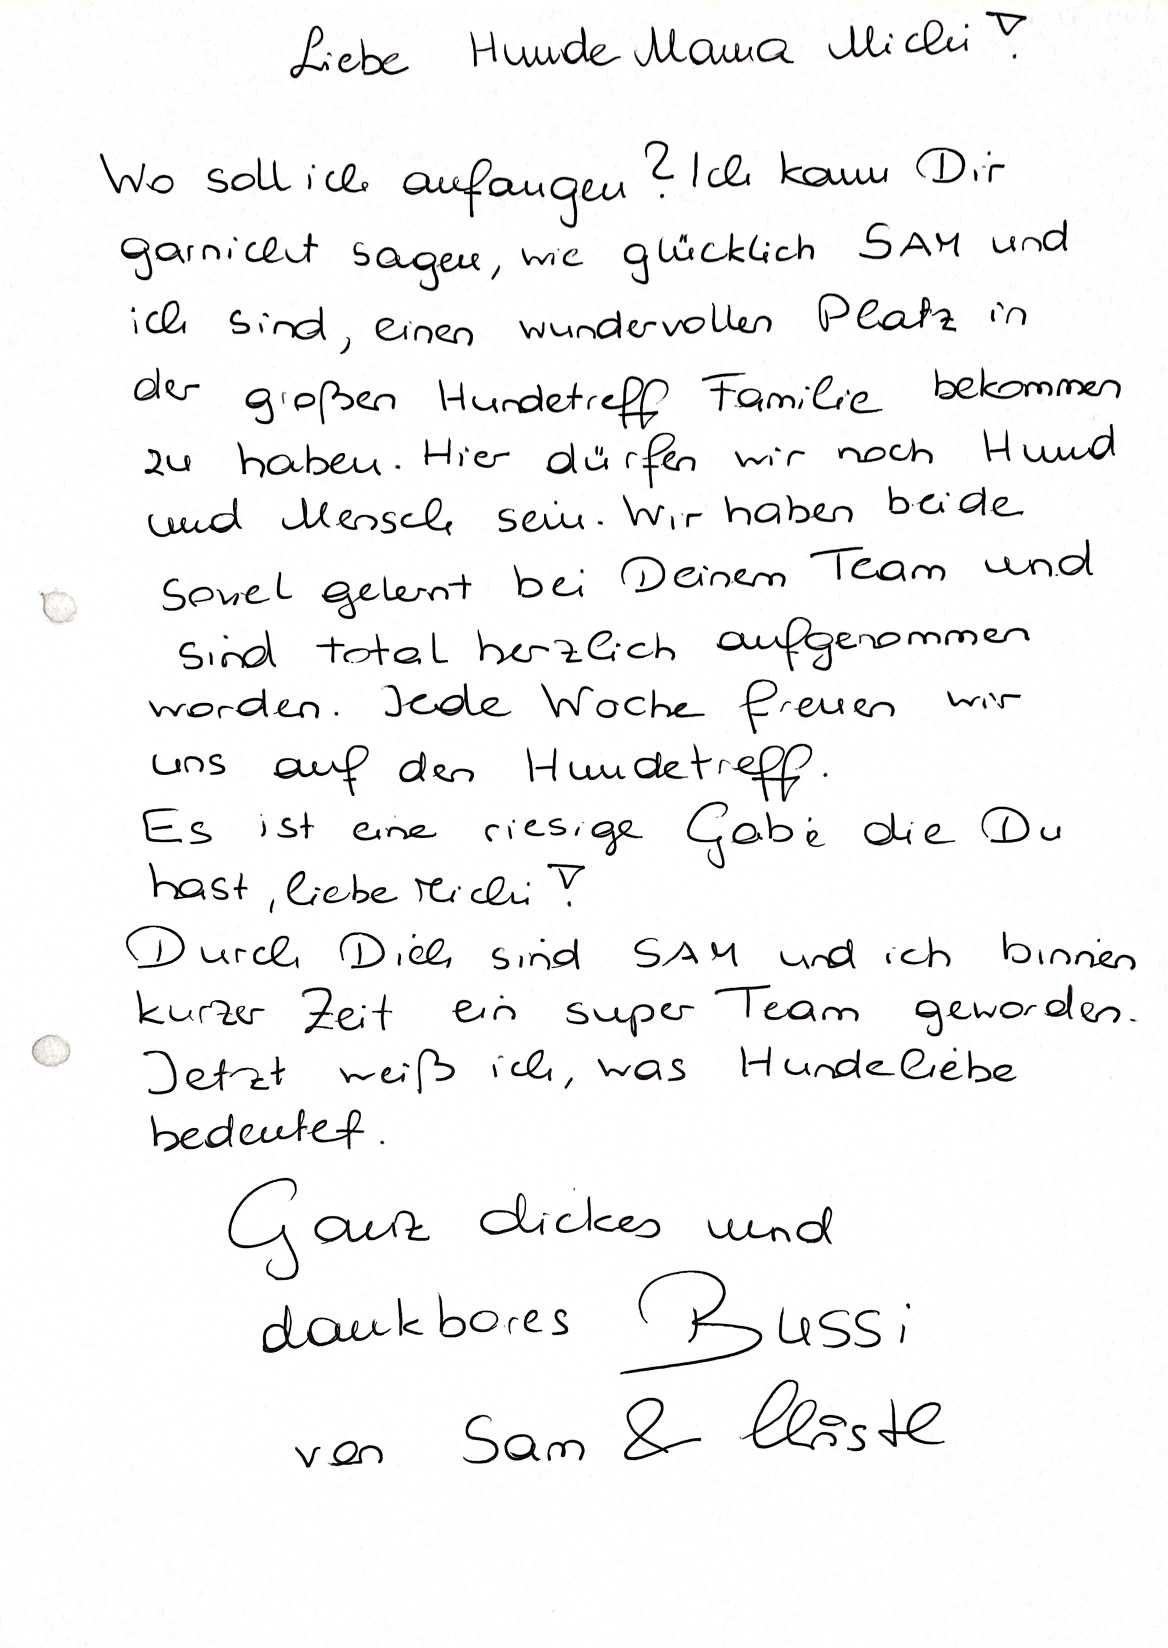 Liebe Hunde Mama Michi!
Wo soll ich anfangen? Ich kann Dir
garnicht sagen, wie glücklich SAM und
ich sind, einen wundervollen Platz in
der großen Hundetreff Familie bekommen
zu haben. Hier dürfen wir noch Hund
und Mensch sein. Wir haben beide
soviel gelernt bei Deinem Team und
sind total herzlich aufgenommen
worden. Jede Woche freuen wir
uns auf den Hundetreff.
Es ist eine riesige Gabe die Du
hast, liebe Michi!
Durch Dich sind SAM und ich binnen
kurzer Zeit ein super Team geworden.
Jetzt weiß ich, was Hundeliebe
bedeutet.
Ganz dickes und
dankbares Bussi
von Sam &